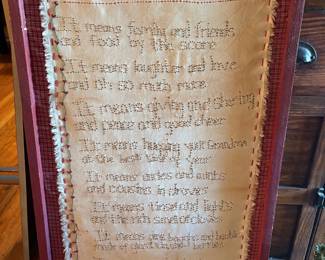 It means family and friends
and food by the score
It means laughter and love
and oh so much more
It means giving and sharing
and peace and good cheer
It means hugging your Grandma
at the best time of year
It means uncles and aunts
and cousins in droves
It means tinsel and lights
and the rich smell of cloves
It means pine boughs and
made of berries